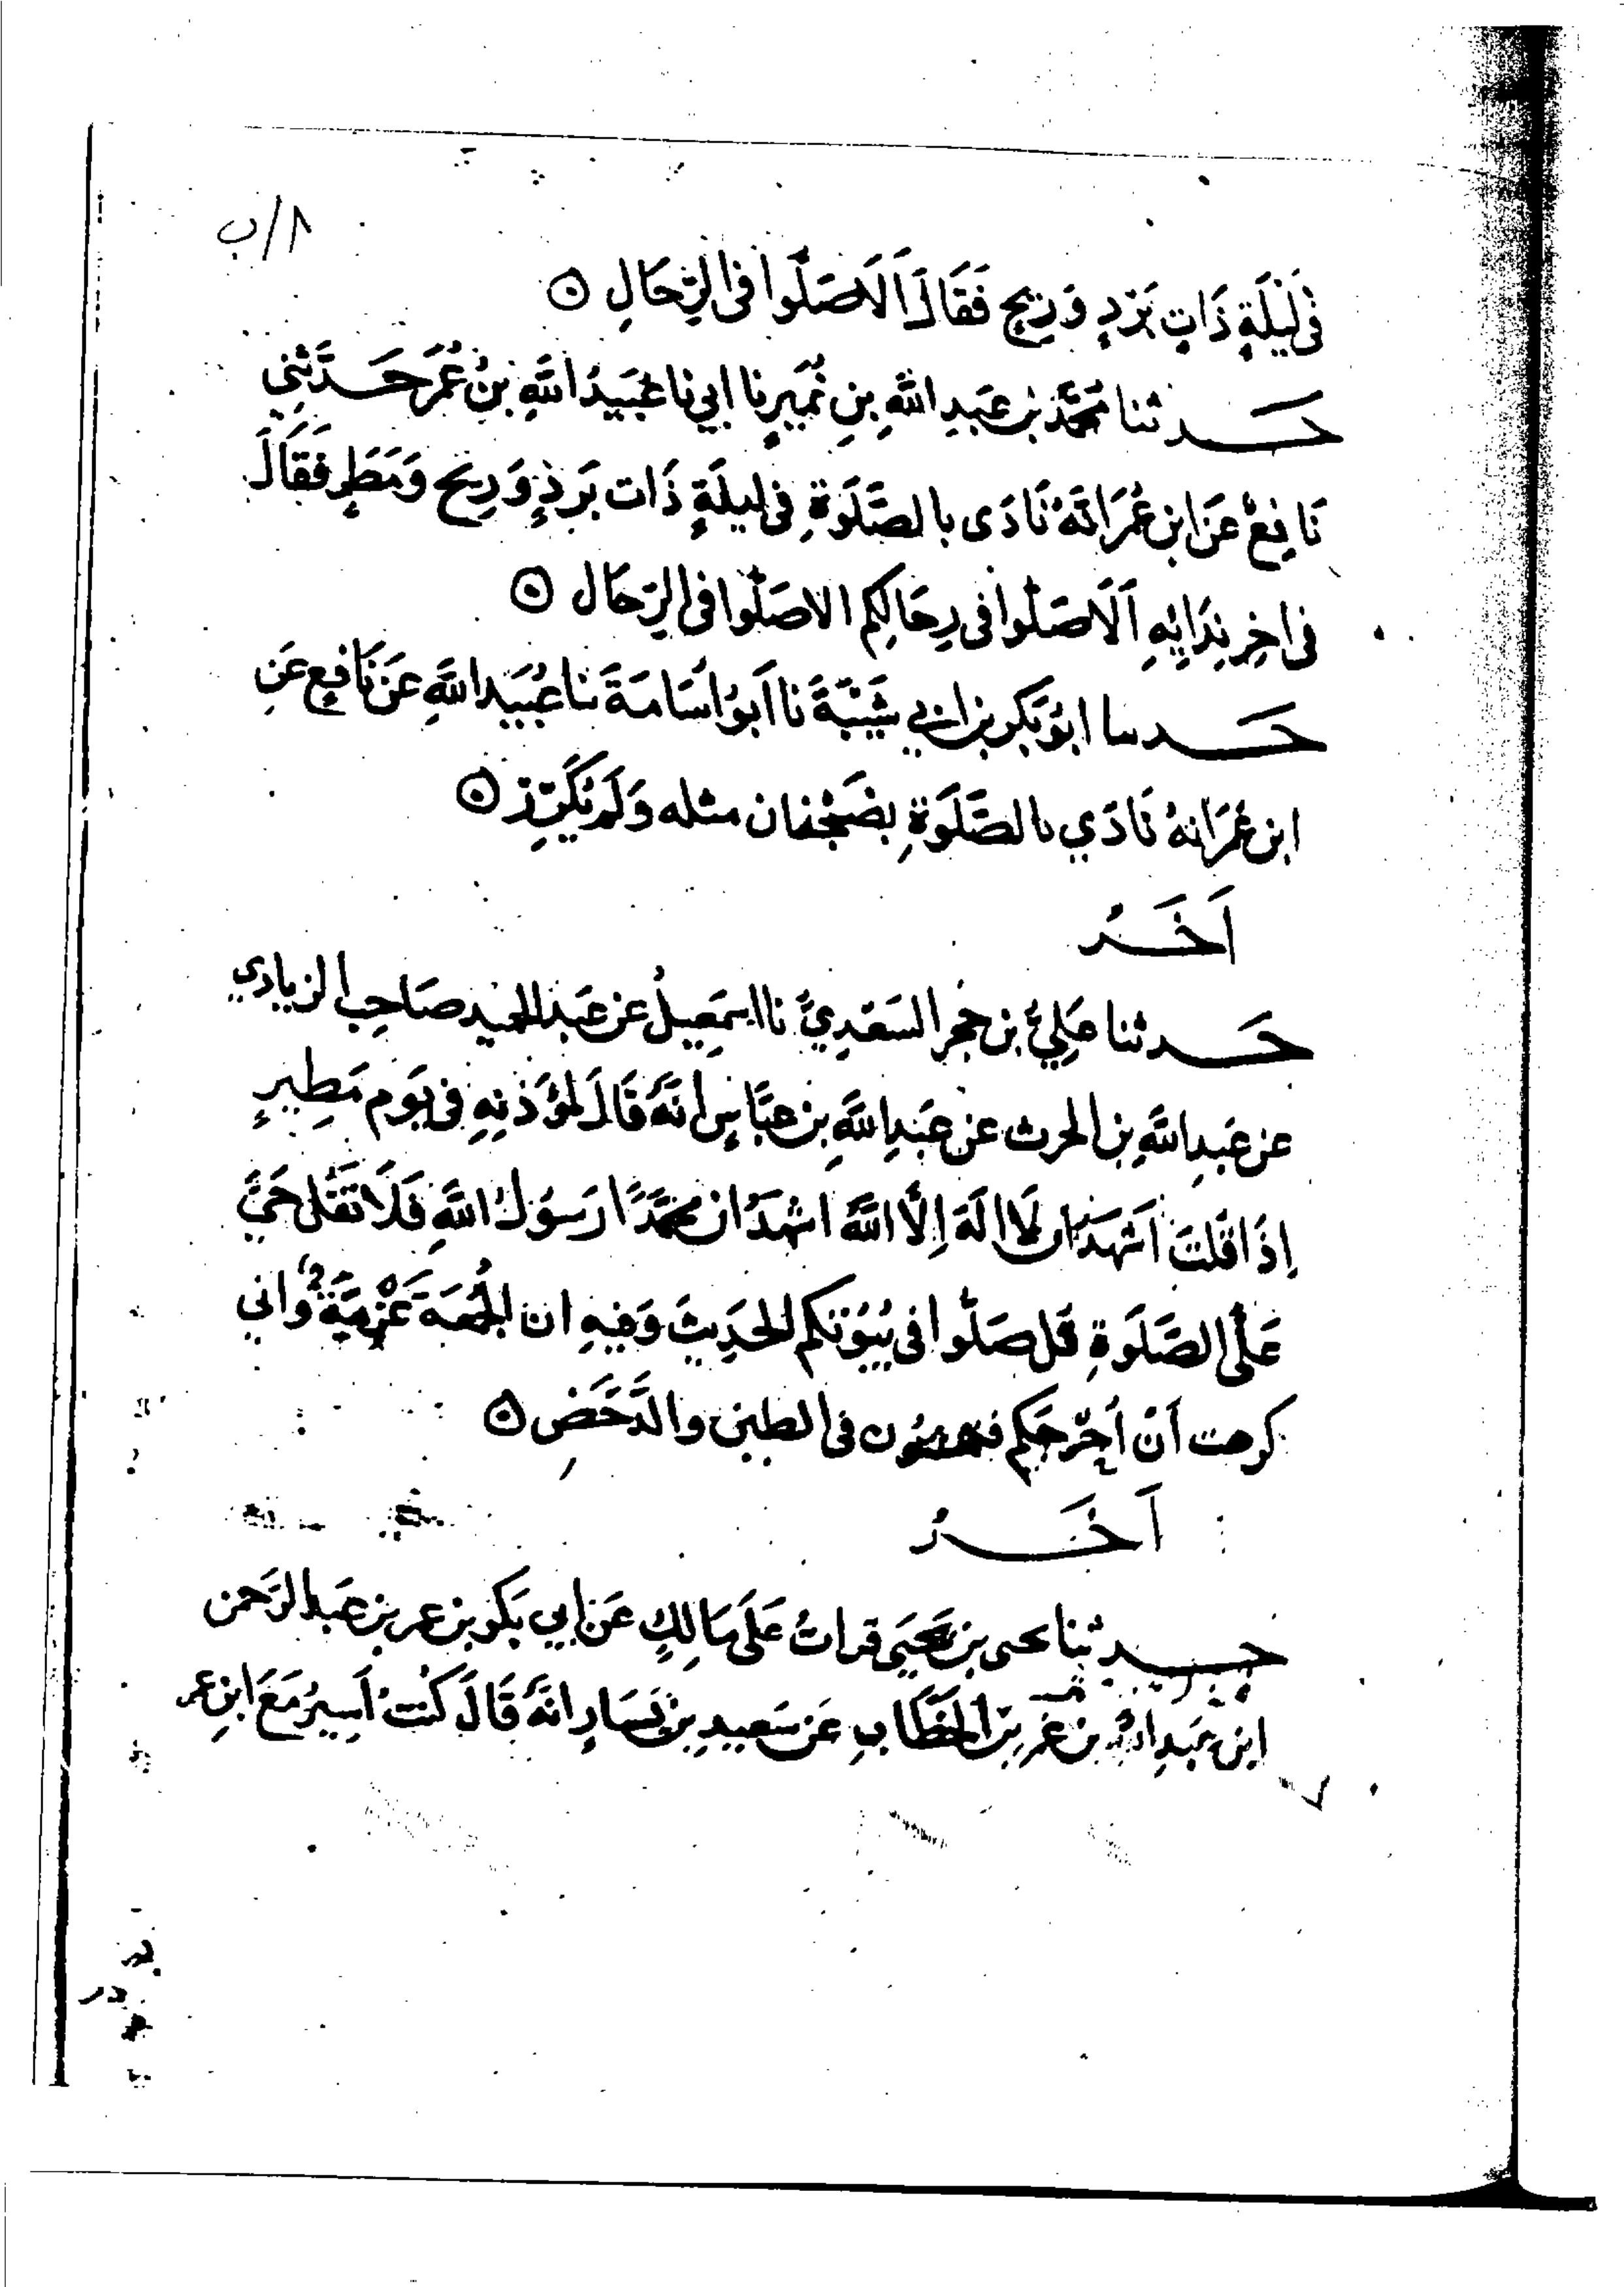 ٨/ب
فِى لَيْلَةٍ ذَاتِ بَرْدٍ وَرِيحٍ فَقَالَ اَلَا صَلُّوا فى الرِّحَالِ ۞
حَـدثنا مُحَمَّدُ بْن عَبدِ اللهِ بنِ نُمَيرٍ نا ابي نا عُبَيدُ اللهِ بنُ عُمَرَ حَـدَّثَنِي
نَافِعٌ عَن ابنِ عُمَرَ انَّهُ نَادَى بالصَّلَوٰةِ فى ليلَةٍ ذَات بَردٍ وَرِيحٍ وَمَطَرٍ فَقَالَ
فى اخِرِ نِدَائِهِ اَلَا صَلُّوا فى رِحَالِكم الا صَلُّوا فى الرِّحَال ۞
حَـدسا ابُو بَكرِ بن ابي شَيْبَةَ نا اَبو اُسَامَةَ نا عُبَيد اللهِ عَن نَافِع عَنِ
ابن عُمَرَ انهُ نَادَي بالصَّلَوٰةِ بضَجْنان مثله وَلَم يُكَرِّرْ ۞
اَخَـرُ
حَـدثنا عَلِيُّ بن حُجر السَعْدِيُّ نا اسمَعِيلُ عن عَبد الحميد صَاحِب الزيادي
عن عَبدِ اللهِ بن الحرث عن عَبدِ اللهِ بن عَبَّاسٍ انَّهُ قَالَ لِمُؤَذنِهِ فى يَومٍ مَطِيرٍ
اِذَا قُلتَ اَشهَدُ ان لَا الَهَ اِلَّا اللهُ اشهَدُ ان مُحَمَّدًا رَسُولُ اللهِ فَلَا تَقُل حَيَّ
عَلى الصَّلَوٰةِ قل صَلُّوا فى بُيُوتكم الحَدِيثَ وَفِيهِ ان الجُمعَةَ عَزْمَةٌ واني
كرهت اَنْ اُحَرِّجَكم فى الطين والدَّحَضِ ۞
اَخَـرُ
حَـدثنا يحيى بن يَحيَى قراتُ عَلَى مَالِكٍ عَن ابي بَكرِ بن عمر بن عَبد الرَحمن
ابن عَبدِ اللهِ بن عُمَر بن الخَطَّابِ عَن سَعيدِ بن يَسَارٍ انَّهُ قَالَ كُنْتُ اَسِيرُ مَعَ ابنِ عمر